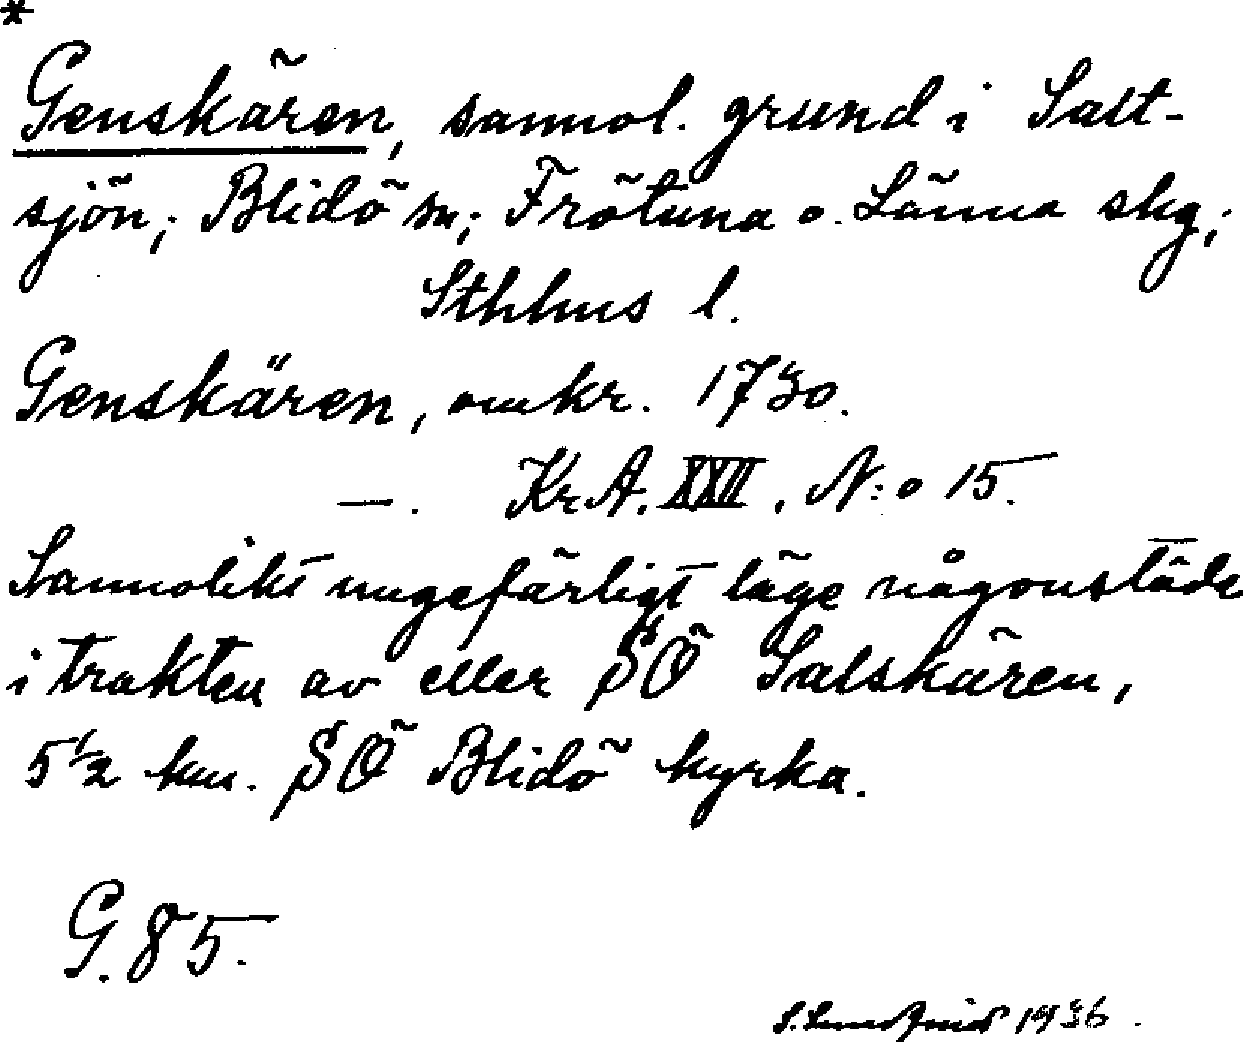 *
Genskären, sannol. grund i Salt-
sjön; Blidö sn; Frötuna o. Länna skg;
Sthlms l.
Genskären, omkr. 1730.
—. Kr.A. XXII, N:o 15.
Sannolikt ungefärligt läge någonstäde
i trakten av eller SÖ Salskären,
5½ km. SÖ Blidö kyrka.
G. 85.
1936.